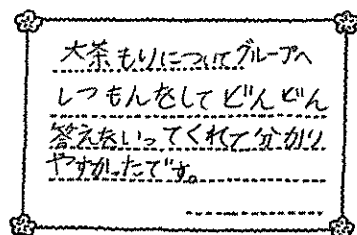 大茶もりについてグループへ
しつもんをしてどんどん
答えをいってくれて分かり
やすかったてす。